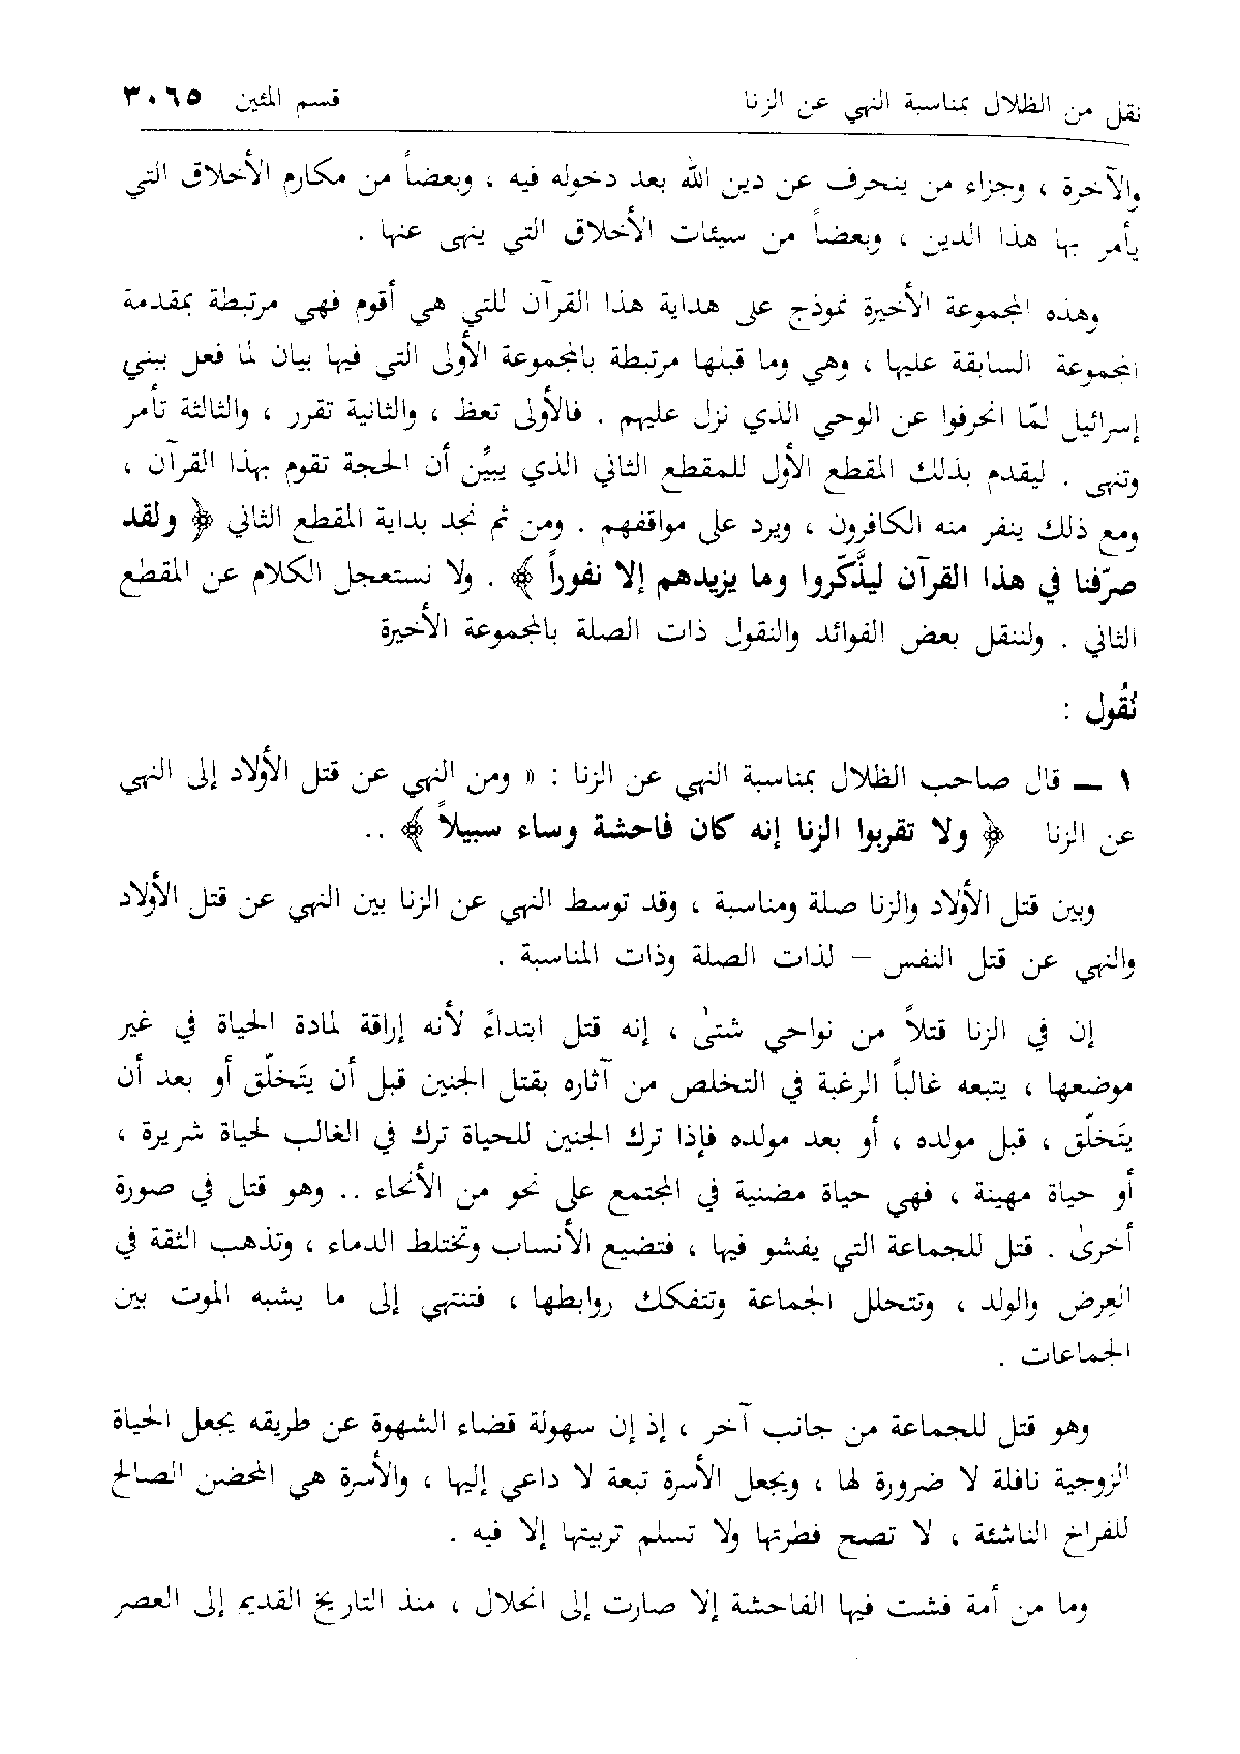 نقل من الظلال بمناسبة النهي عن الزنا قسم المئين ٣٠٦٥
والآخرة ، وجزاء من ينحرف عن دين الله بعد دخوله فيه ، وبعضاً من مكارم الأخلاق التي
يأمر بها هذا الدين ، وبعضاً من سيئات الأخلاق التي ينهى عنها .
وهذه المجموعة الأخيرة نموذج على هداية هذا القرآن للتي هي أقوم فهي مرتبطة بمقدمة
المجموعة السابقة عليها ، وهي وما قبلها مرتبطة بالمجموعة الأولى التي فيها بيان لما فعل ببني
إسرائيل لمّا انحرفوا عن الوحي الذي نزل عليهم . فالأولى تعظ ، والثانية تقرر ، والثالثة تأمر
وتنهى . ليقدم بذلك المقطع الأول للمقطع الثاني الذي يبيِّن أن الحجة تقوم بهذا القرآن ،
ومع ذلك ينفر منه الكافرون ، ويرد على مواقفهم . ومن ثم نجد بداية المقطع الثاني ﴿ ولقد
صرّفنا في هذا القرآن ليذّكّروا وما يزيدهم إلا نفوراً ﴾ . ولا نستعجل الكلام عن المقطع
الثاني . ولننقل بعض الفوائد والنقول ذات الصلة بالمجموعة الأخيرة
نُقُول :
١ ــ قال صاحب الظلال بمناسبة النهي عن الزنا : « ومن النهي عن قتل الأولاد إلى النهي
عن الزنا ﴿ ولا تقربوا الزنا إنه كان فاحشة وساء سبيلاً ﴾ ..
وبين قتل الأولاد والزنا صلة ومناسبة ، وقد توسط النهي عن الزنا بين النهي عن قتل الأولاد
والنهي عن قتل النفس – لذات الصلة وذات المناسبة .
إن في الزنا قتلاً من نواحي شتى ، إنه قتل ابتداءً لأنه إراقة لمادة الحياة في غير
موضعها ، يتبعه غالباً الرغبة في التخلص من آثاره بقتل الجنين قبل أن يتَخلّق أو بعد أن
يتَخلّق ، قبل مولده ، أو بعد مولده فإذا ترك الجنين للحياة ترك في الغالب لحياة شريرة ،
أو حياة مهينة ، فهي حياة مضنية في المجتمع على نحو من الأنحاء .. وهو قتل في صورة
أخرى . قتل للجماعة التي يفشو فيها ، فتضيع الأنساب وتختلط الدماء ، وتذهب الثقة في
العِرض والولد ، وتتحلل الجماعة وتتفكك روابطها ، فتنتهي إلى ما يشبه الموت بين
الجماعات .
وهو قتل للجماعة من جانب آخر ، إذ إن سهولة قضاء الشهوة عن طريقه يجعل الحياة
الزوجية نافلة لا ضرورة لها ، ويجعل الأسرة تبعة لا داعي إليها ، والأسرة هي المحضن الصالح
للفراخ الناشئة ، لا تصح فطرتها ولا تسلم تربيتها إلا فيه .
وما من أمة فشت فيها الفاحشة إلا صارت إلى انحلال ، منذ التاريخ القديم إلى العصر